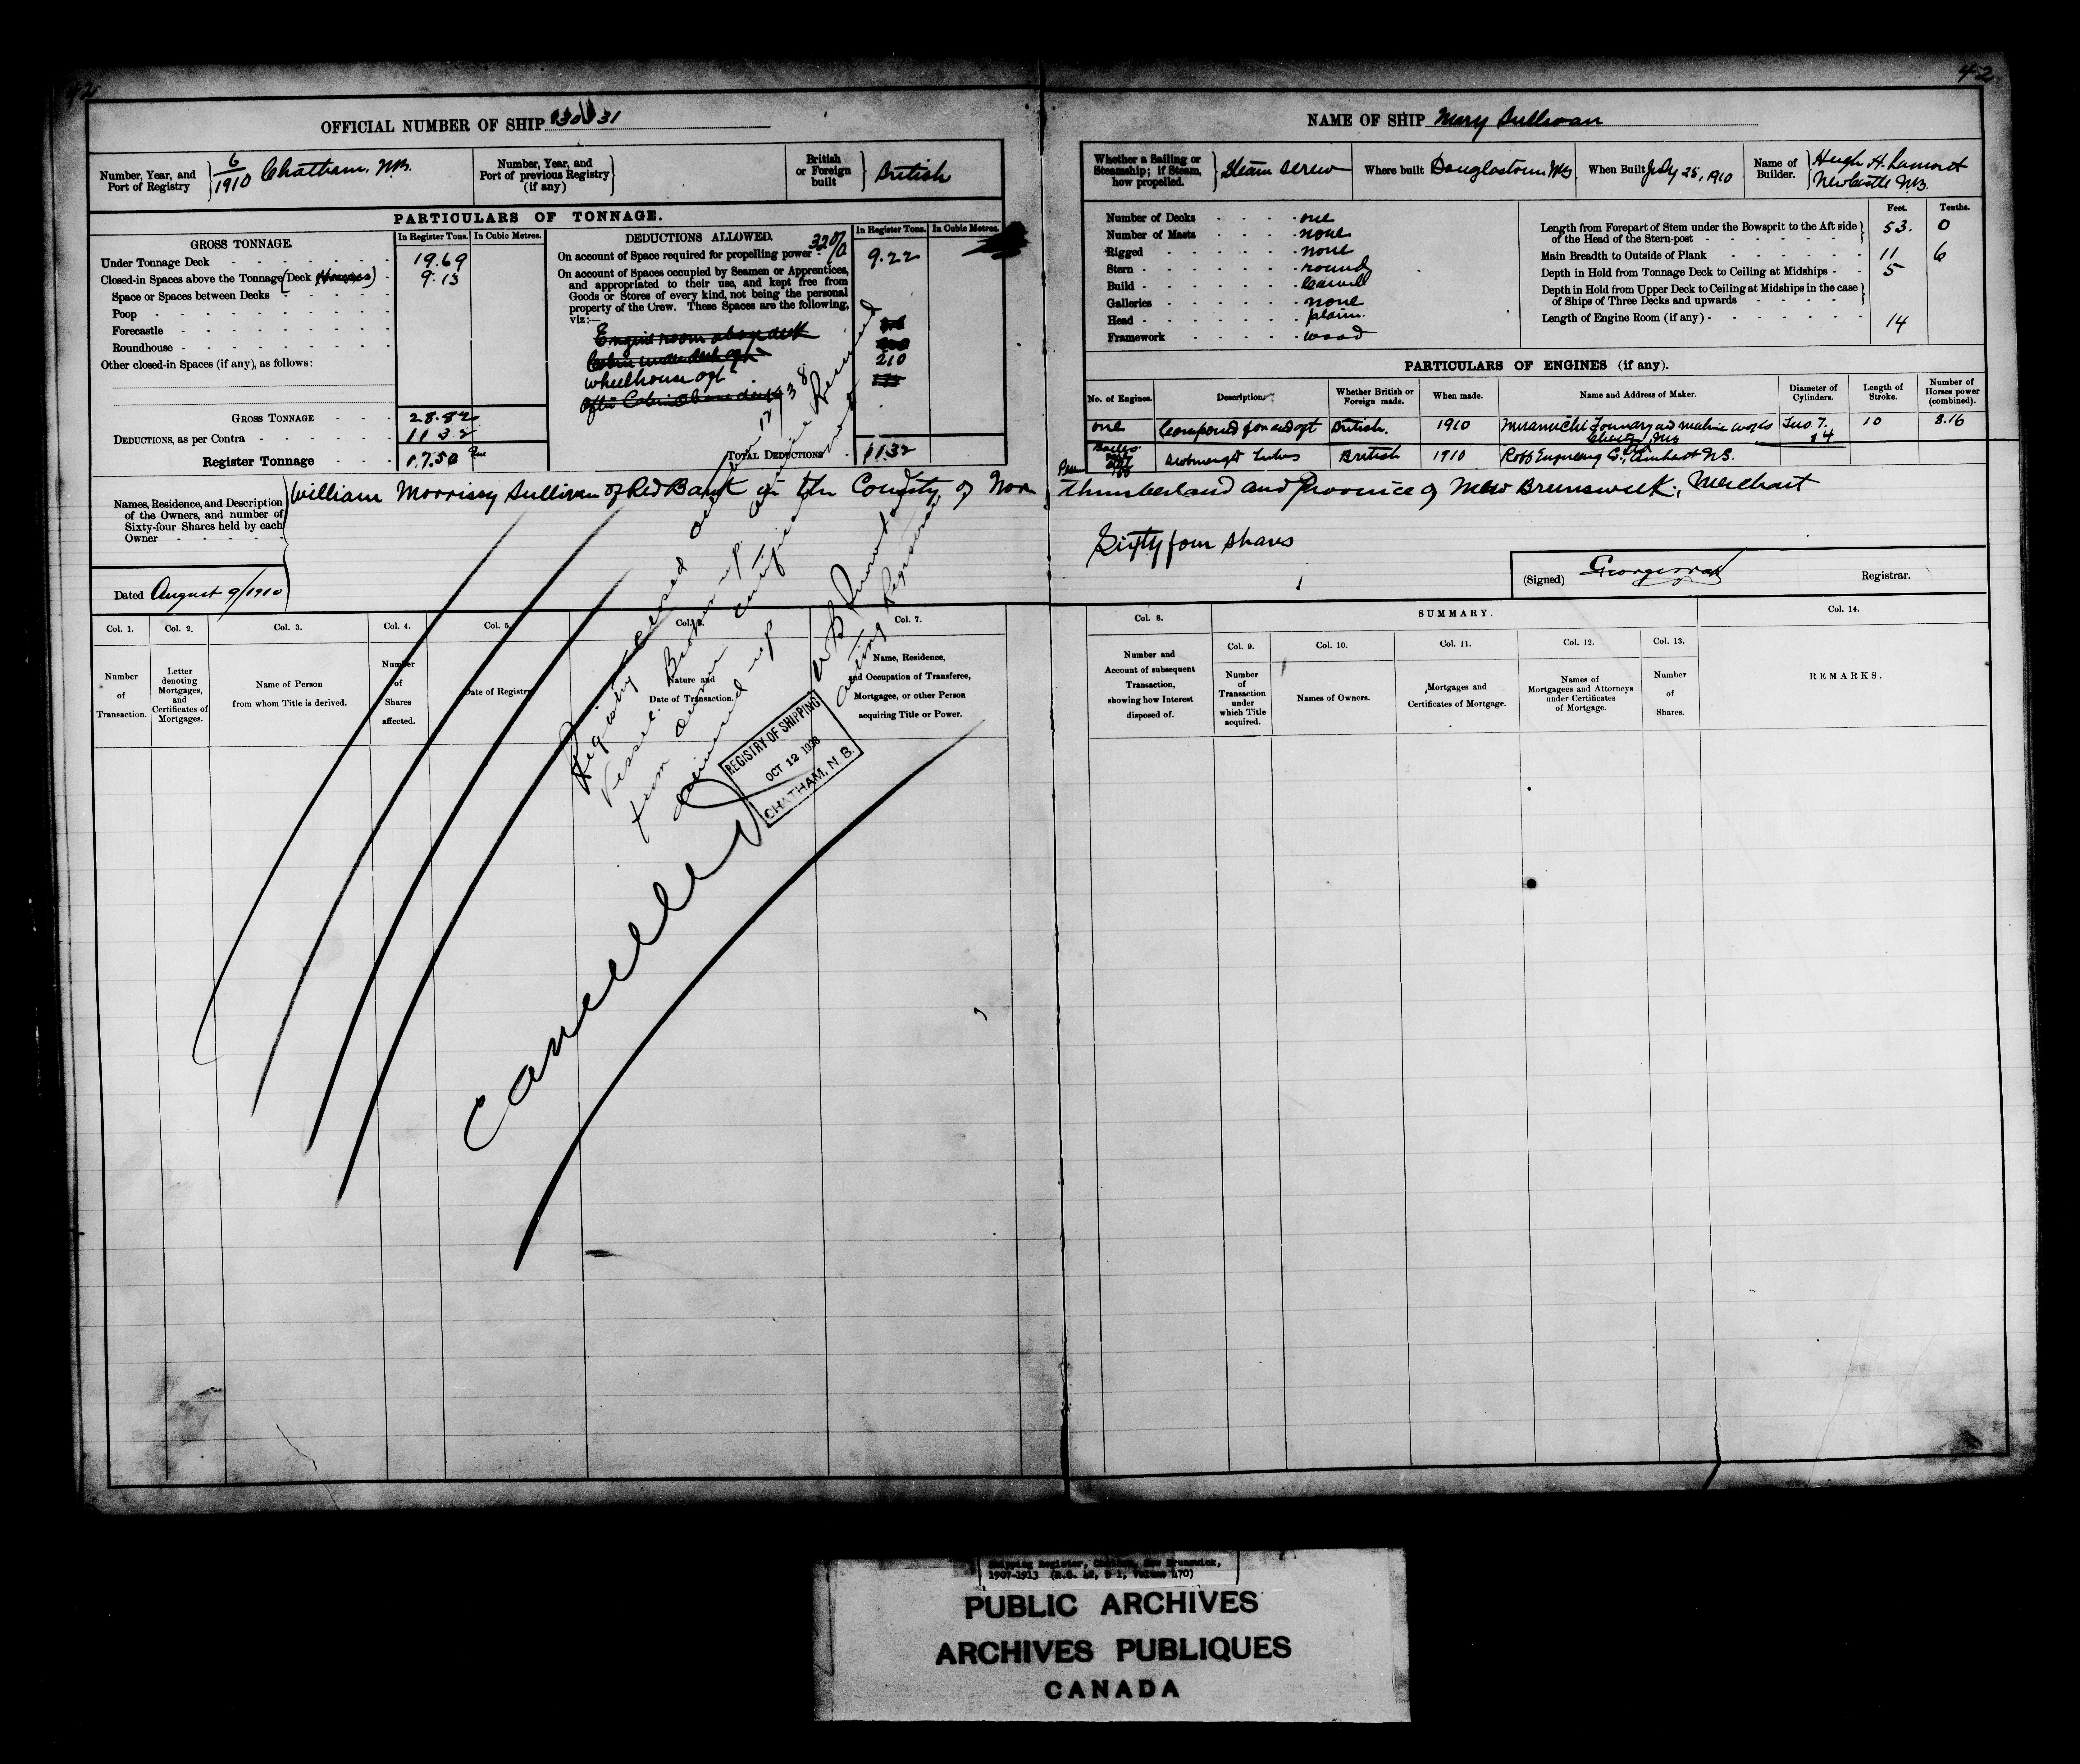 42
42
OFFICIAL NUMBER OF SHIP
NAME OF SHIP Mary Sullivan
Number, Year, and Port of Registry 6/1910 Chatham, NB.
Number, Year, and Port of previous Registry (if any)
British or Foreign built British
Whether a Sailing or Steamship; if Steam, how propelled. Steam Screw
Where built Douglastown NB
When Built July 25, 1910
Name of Builder. Hugh H. Lamont Newcastle NB.
PARTICULARS OF TONNAGE.
GROSS TONNAGE.
In Register Tons.
In Cubic Metres.
Under Tonnage Deck 19.69
Closed-in Spaces above the Tonnage Deck 9.13
Space or Spaces between Decks
Poop
Forecastle
Roundhouse
Other closed-in Spaces (if any), as follows:
GROSS TONNAGE 28.82
DEDUCTIONS, as per Contra 11.32
Register Tonnage 17.50
DEDUCTIONS ALLOWED.
In Register Tons.
In Cubic Metres.
On account of Space required for propelling power 32% 9.22
On account of Spaces occupied by Seamen or Apprentices,
and appropriated to their use, and kept free from
Goods or Stores of every kind, not being the personal
property of the Crew. These Spaces are the following,
viz:—
Engine room above deck
Cabin under deck aft
wheelhouse aft 210
After Cabin above deck
TOTAL DEDUCTIONS 11.32
Number of Decks one
Number of Masts none
Rigged none
Stern round
Build Carvel
Galleries none
Head plain.
Framework wood
Feet. Tenths.
Length from Forepart of Stem under the Bowsprit to the Aft side
of the Head of the Stern-post 53. 0
Main Breadth to Outside of Plank 11 6
Depth in Hold from Tonnage Deck to Ceiling at Midships 5
Depth in Hold from Upper Deck to Ceiling at Midships in the case
of Ships of Three Decks and upwards
Length of Engine Room (if any) 14
PARTICULARS OF ENGINES (if any).
No. of Engines. Description. Whether British or Foreign made. When made. Name and Address of Maker. Diameter of Cylinders. Length of Stroke. Number of Horses power (combined).
one Compound fore and aft British. 1910 Miramichi Foundry and machine works Chatham NB Two. 7. 14 10 8.16
Submerged tubes British 1910 Robb Engineering Co., Amherst N.S.
Names, Residence, and Description of the Owners, and number of Sixty-four Shares held by each Owner
William Morrissy Sullivan of Red Bank in the County of Northumberland and Province of New Brunswick, Merchant
Sixty four shares
Dated August 9/1910
(Signed)
Registrar.
Registry closed October 12/38
Vessel Broken up
from owner
certificate
Acting Registrar
REGISTRY OF SHIPPING
OCT 12 1938
CHATHAM, N.B.
Cancelled
SUMMARY.
Col. 1. Number of Transaction.
Col. 2. Letter denoting Mortgages, and Certificates of Mortgages.
Col. 3. Name of Person from whom Title is derived.
Col. 4. Number of Shares affected.
Col. 5. Date of Registry
Col. 6. Nature and Date of Transaction.
Col. 7. Name, Residence, and Occupation of Transferee, Mortgagee, or other Person acquiring Title or Power.
Col. 8. Number and Account of subsequent Transaction, showing how Interest disposed of.
Col. 9. Number of Transaction under which Title acquired.
Col. 10. Names of Owners.
Col. 11. Mortgages and Certificates of Mortgage.
Col. 12. Names of Mortgagees and Attorneys under Certificates of Mortgage.
Col. 13. Number of Shares.
Col. 14. REMARKS.
Shipping Register, Chatham, New Brunswick,
1907-1913 (R.G. 42, D 1, Volume 470)
PUBLIC ARCHIVES
ARCHIVES PUBLIQUES
CANADA